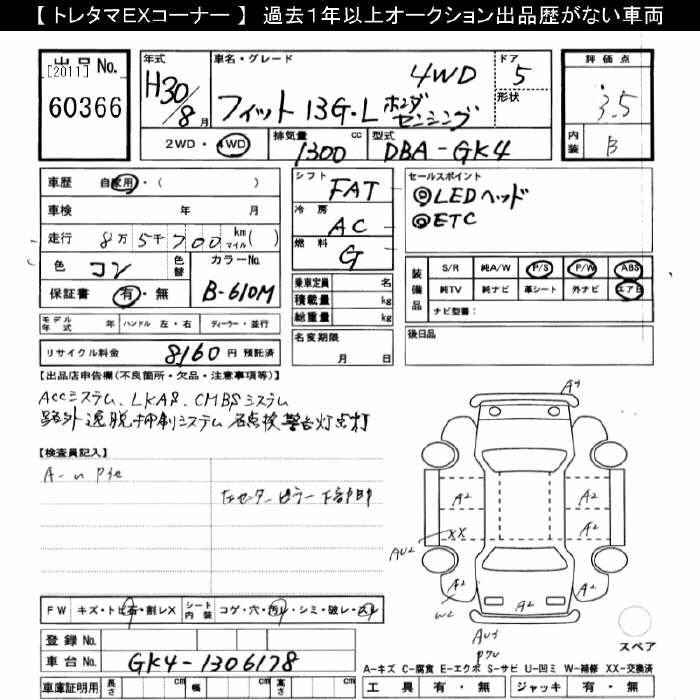 【 トレタマEXコーナー 】 過去1年以上オークション出品歴がない車両
出品No.
[2011]
60366
年式
H30/8月
車名・グレード
フィット 13G・L ホンダセンシング
4WD
ドア
5
形状
評価点
3.5
内装
B
2WD・4WD
排気量
1300
cc
型式
DBA-GK4
車歴 自家用・( )
車検 年 月
走行 8万5千700 km マイル( )
色 コン
色替
カラーNo.
B-610M
保証書 有・無
シフト
FAT
冷房
AC
燃料
G
セールスポイント
◎LEDヘッド
◎ETC
乗車定員 名
積載量 kg
総重量 kg
名変期限
月 日
装備品
S/R 純A/W P/S P/W ABS
純TV 純ナビ 革シート 外ナビ エアB
ナビ型番:
後日品
モデル年式 年 ハンドル 左・右 ディーラー・並行
リサイクル料金 8160 円 預託済
【出品店申告欄(不良箇所・欠品・注意事項等)】
Accシステム、LKAS、CMBSシステム
路外逸脱抑制システム 点検 警告灯点灯
【検査員記入】
左センターピラー下部
A2
A2
A2
A2
XX
A2
A2
A2
W2
FW キズ・トビ石・割レX
シート内装 コゲ・穴・汚レ・シミ・破レ・
登録No.
車台No. GK4-1306178
スペア
車庫証明用 長さ cm 幅 cm 高さ cm
A-キズ C-腐食 E-エクボ S-サビ U-凹ミ W-補修 XX-交換済
工具 有・無 ジャッキ 有・無